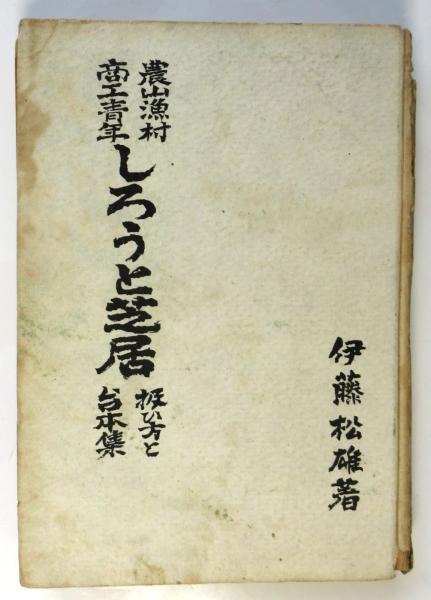 伊藤松雄著
農山漁村
商工青年
しろうと芝居
扱ひ方と
台本集